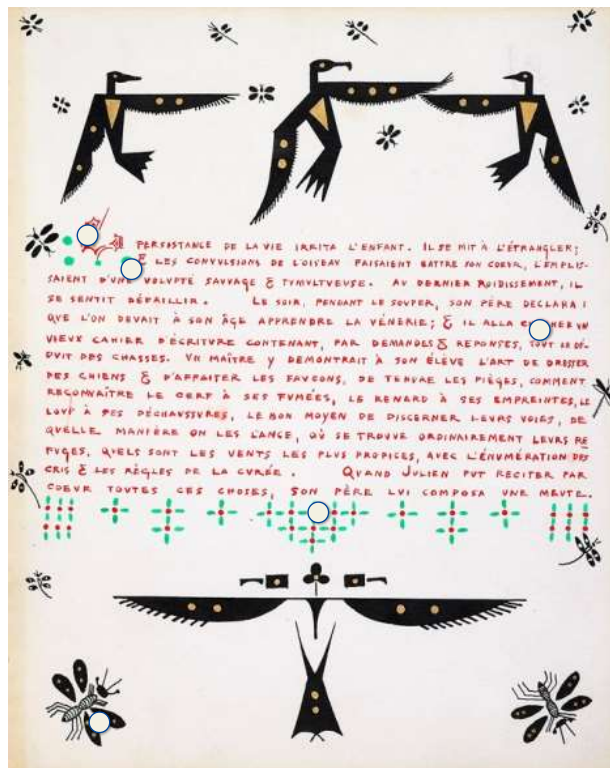 PERSISTANCE DE LA VIE IRRITA L'ENFANT. IL SE MIT À L'ÉTRANGLER;
& LES CONVULSIONS DE L'OISEAU FAISAIENT BATTRE SON COEUR, L'EMPLIS-
SAIENT D'UNE VOLUPTÉ SAUVAGE & TVMVLTVEVSE. AU DERNIER ROIDISSEMENT, IL
SE SENTIT DÉFAILLIR. LE SOIR, PENDANT LE SOUPER, SON PÈRE DECLARA
QUE L'ON DEVAIT À SON ÂGE APPRENDRE LA VÉNERIE; & IL ALLA VN
VIEUX CAHIER D'ÉCRITURE CONTENANT, PAR DEMANDES & REPONSES, TOUT LE DÉ-
DVIT DES CHASSES. VN MAÎTRE Y DEMONTRAIT À SON ÉLÈVE L'ART DE DRESSER
DES CHIENS & D'AFFAITER LES FAVCONS, DE TENDRE LES PIÈGES, COMMENT
RECONNAÎTRE LE CERF À SES FVMÉES, LE RENARD À SES EMPREINTES, LE
LOVP À SES DÉCHAVSSVRES, LE BON MOYEN DE DISCERNER LEVRS VOIES, DE
QVELLE MANIÈRE ON LES LANCE, OÙ SE TROUVE ORDINAIREMENT LEVRS RE
FVGES, QVELS SONT LES VENTS LES PLVS PROPICES, AVEC L'ÉNVMÉRATION DES
CRIS & LES RÈGLES DE LA CVRÉE. QVAND JVLIEN PVT RECITER PAR
COEVR TOUTES CES CHOSES, SON PÈRE LVI COMPOSA VNE MEVTE.